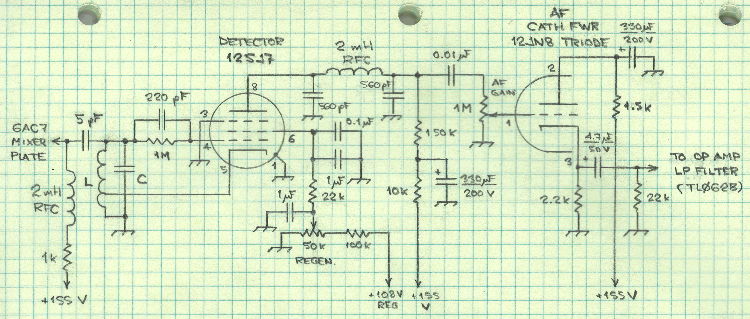 AF
CATH FWR
12JN8 TRIODE
330µF
200V
DETECTOR
12SJ7
2 mH
RFC
0.01µF
2
8
AF
GAIN
1M
1
1.5k
220 pF
560pF
560pF
5 pF
6AC7
MIXER
PLATE
3
4
5
6
1
0.1µF
1M
L
C
150k
1µF
4.7µF
50V
3
TO OP AMP
LP FILTER
(TL062B)
2 mH
RFC
1µF
22k
10k
330µF
200V
2.2k
22k
1k
50k
REGEN.
100k
+155 V
+108V
REG
+155
V
+155V